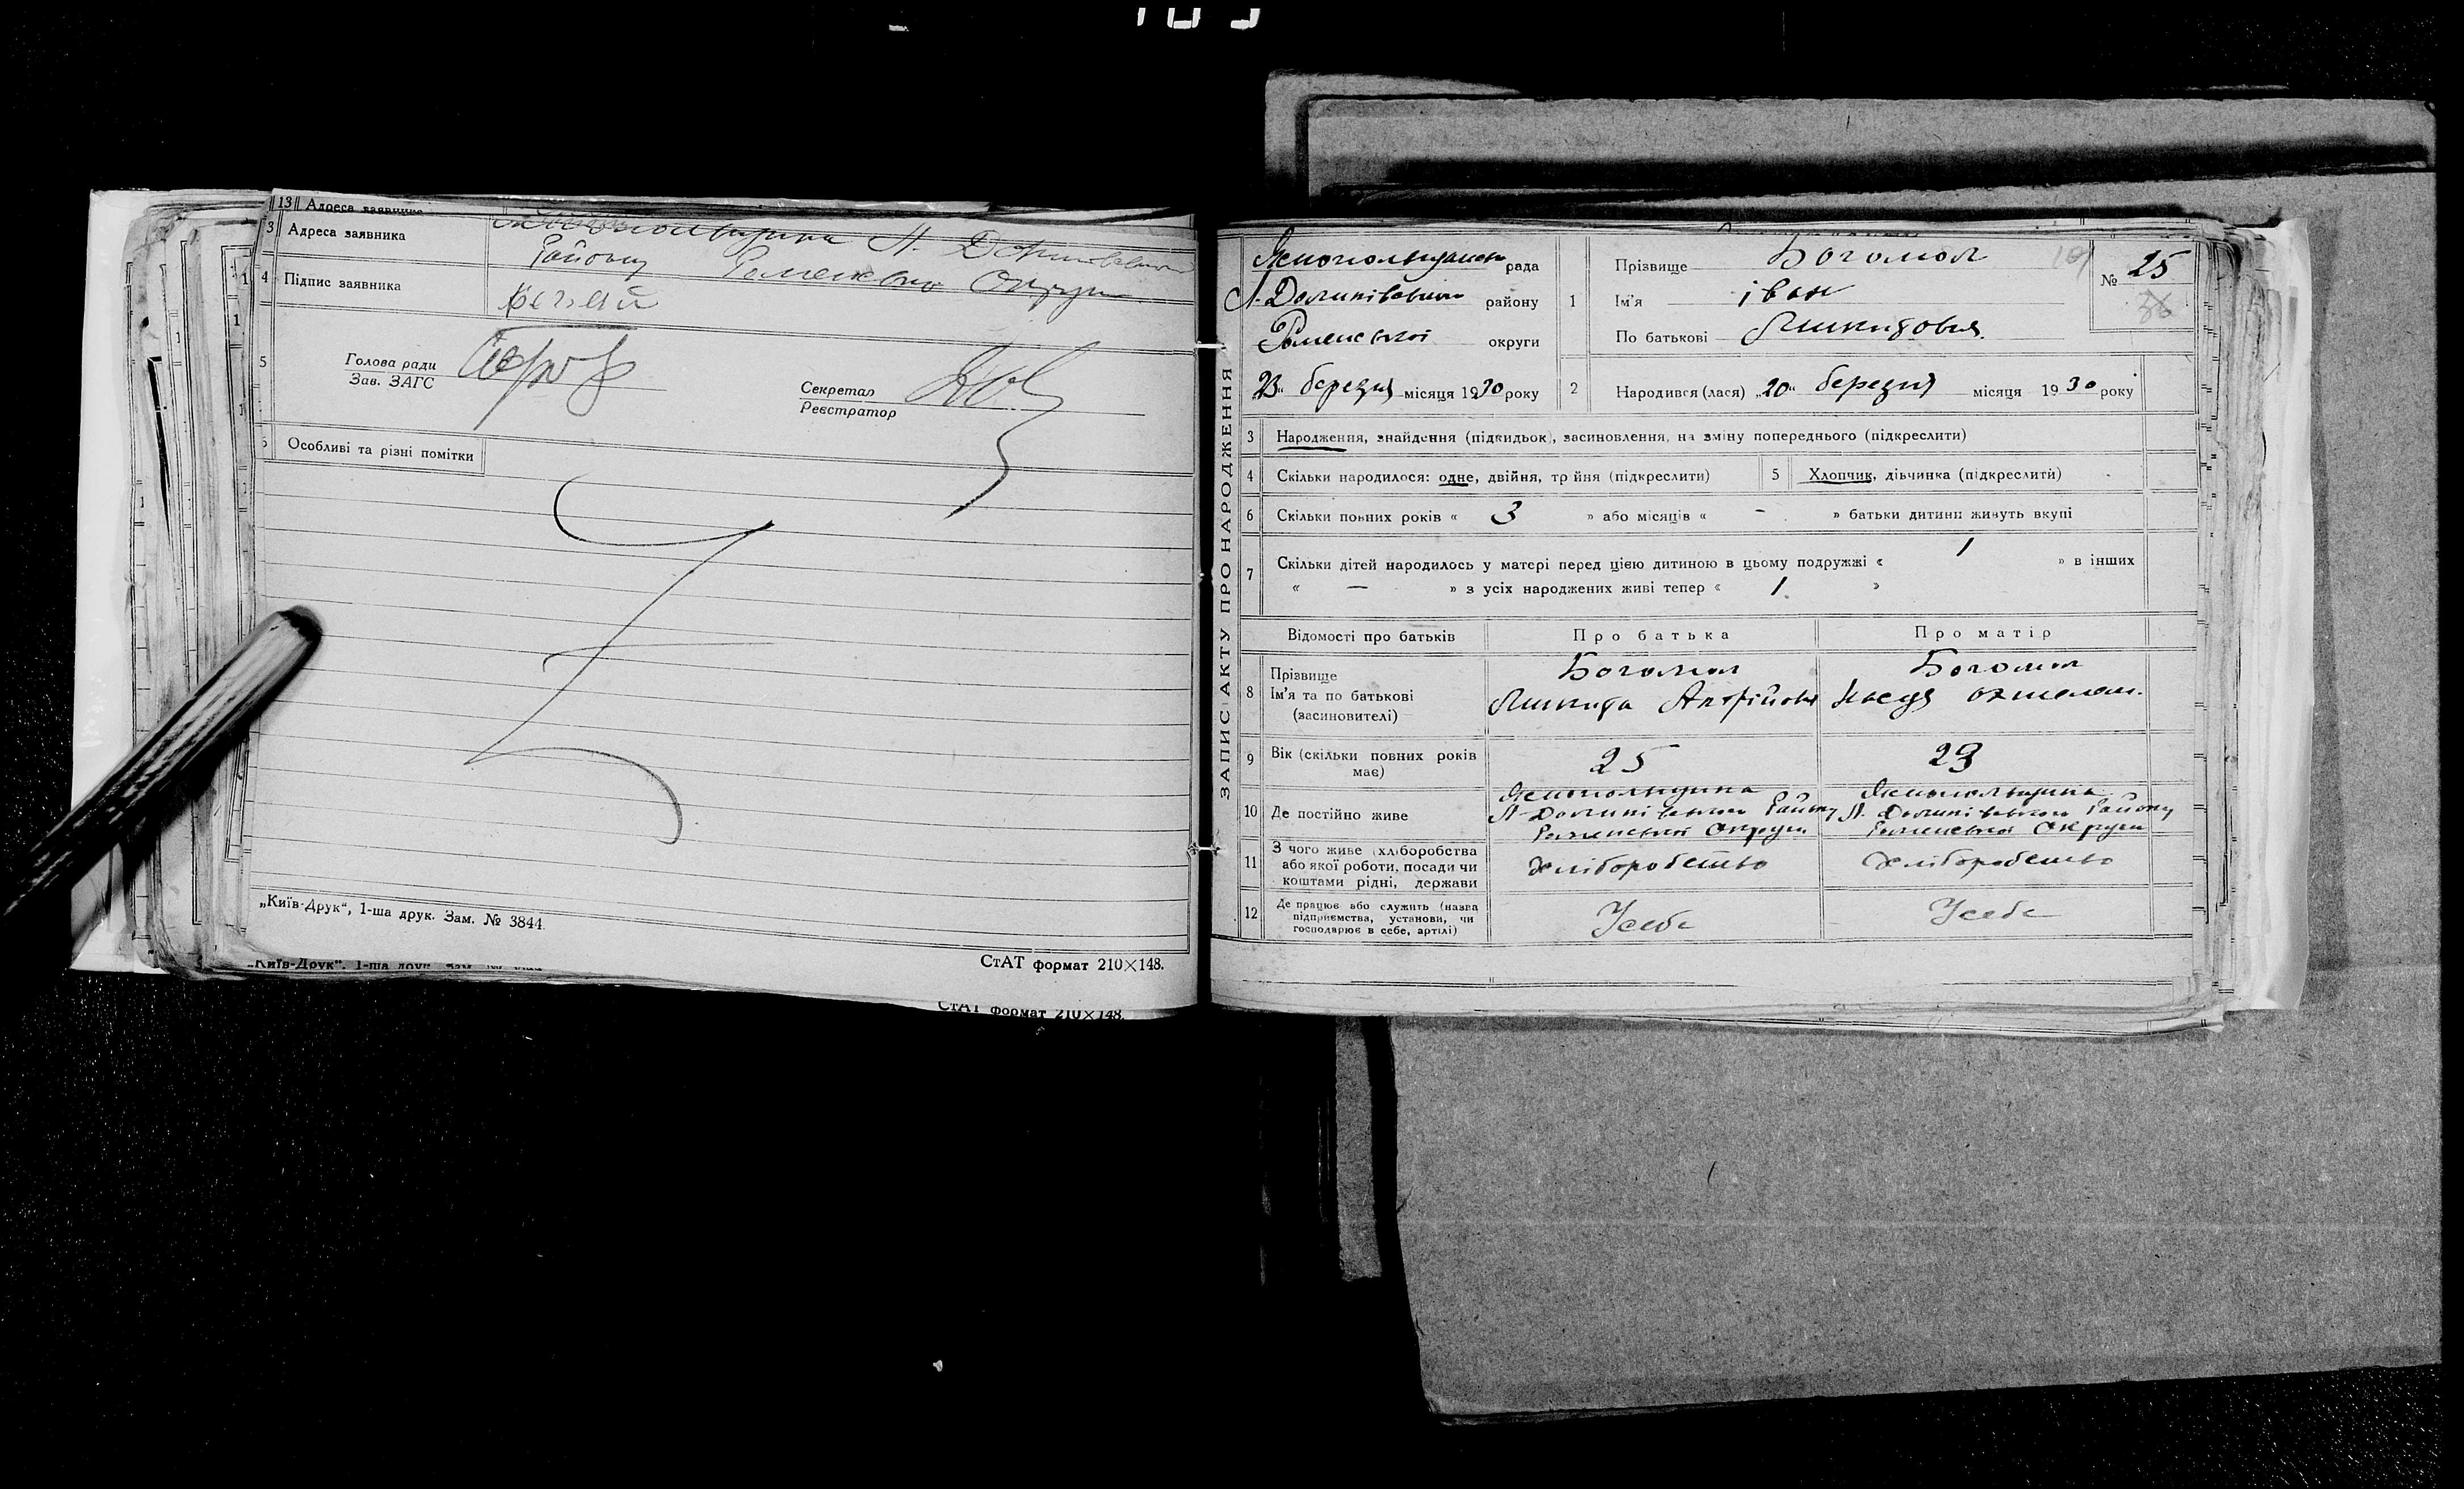 13 Адреса заявника
3 Адреса заявника
Району Роменської Округи
4 Підпис заявника
5 Голова ради
Зав. ЗАГС
Секретар
Реєстратор
Особливі та різні помітки
„Київ-Друк“, 1-ша друк. Зам. № 3844.
„Київ-Друк“, 1-ша друк. Зам. №
СтАТ формат 210×148.
СтАТ формат 210×148.
ЗАПИС АКТУ ПРО НАРОДЖЕННЯ
рада
району
Роменської округи
23 „ березня місяця 1930 року
1 Прізвище Богомол
Ім'я іван
По батькові Микитович
№ 25
2 Народився (лася) „20“ березня місяця 1930 року
3 Народження, знайдення (підкидьок), засиновлення, на зміну попереднього (підкреслити)
4 Скільки народилося: одне, двійня, трійня (підкреслити)
5 Хлопчик, дівчинка (підкреслити)
6 Скільки повних років « 3 » або місяців « - » батьки дитини живуть вкупі
7 Скільки дітей народилось у матері перед цією дитиною в цьому подружжі « 1 » в інших
« — » з усіх народжених живі тепер « 1 »
Відомості про батьків Про батька Про матір
8 Прізвище
Ім'я та по батькові
(засиновителі)
Богомол
Микита Андрійович
Богомол
9 Вік (скільки повних років має) 25 23
10 Де постійно живе
Яснопольщина
Району
Роменської Округи
Яснопольщина
Району
Роменської Округи
11 З чого живе (хліборобства
або якої роботи, посади чи
коштами рідні, держави
хліборобство хліборобство
12 Де працює або служить (назва
підприємства, установи, чи
господарює в себе, артілі)
Усебе Усебе